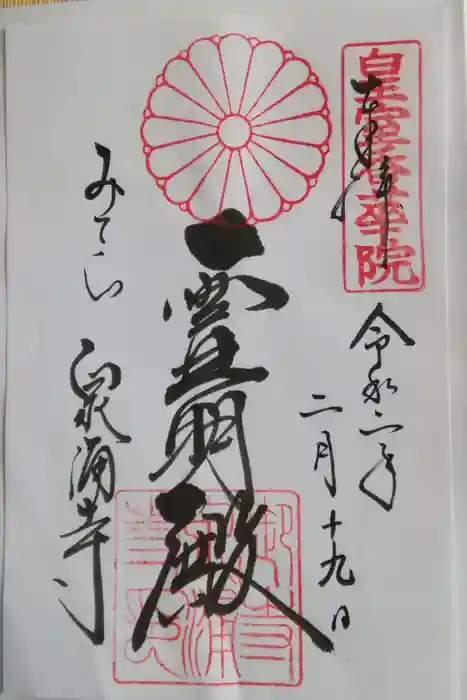 皇室香華院
奉拝
令和二年
二月十九日
霊明殿
みてら 泉涌寺